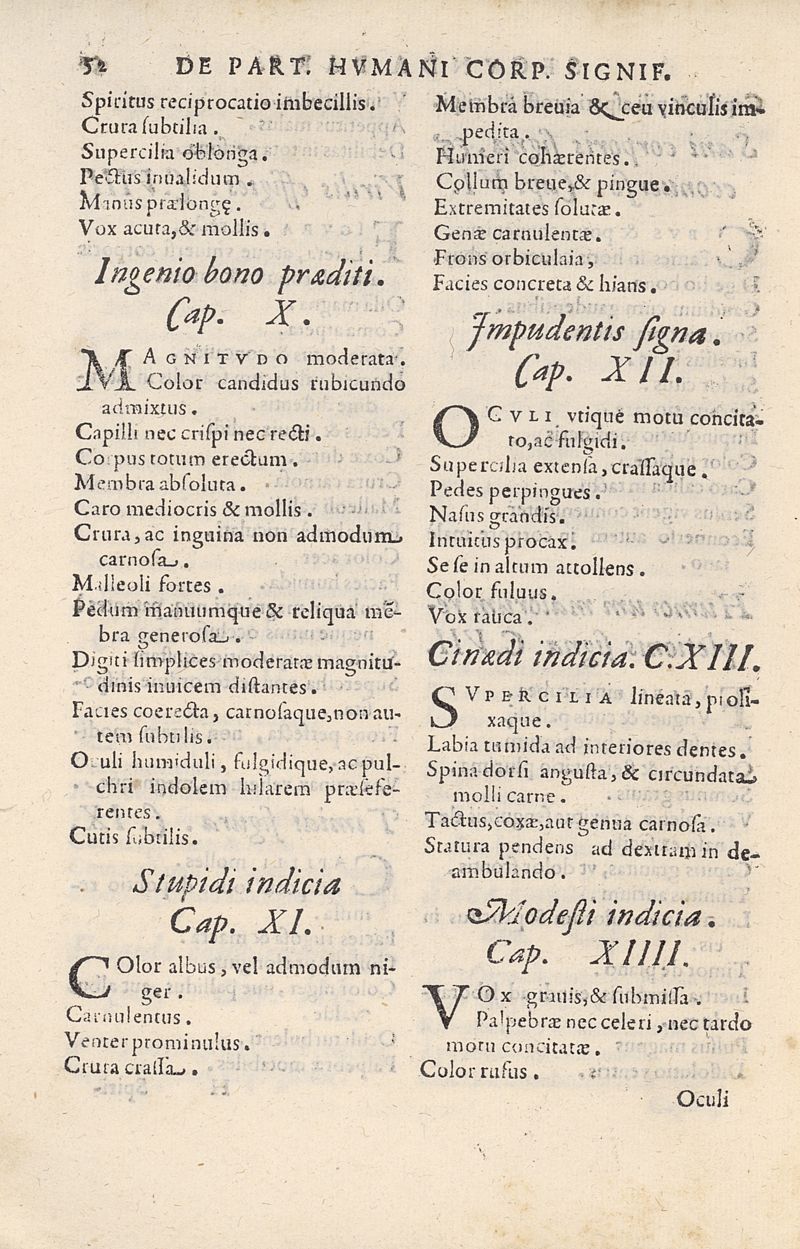 52 DE PART. HVMANI CORP. SIGNIF.
Spiritus reciprocatio imbecillis.
Crura ſubtilia.
Supercilia oblonga.
Pectus inualidum.
Manus prælongę.
Vox acuta, & mollis.
Ingenio bono præditi.
Cap. X.
MAGNITVDO moderata.
Color candidus rubicundo
admixtus.
Capilli nec criſpi nec recti.
Corpus totum erectum.
Membra abſoluta.
Caro mediocris & mollis.
Crura, ac inguina non admodum
carnoſa.
Malleoli fortes.
Pedum manuumque & reliqua mē-
bra generoſa.
Digiti ſimplices moderatæ magnitu-
dinis inuicem diſtantes.
Facies coerecta, carnoſaque, non au-
tem ſubtilis.
Oculi humiduli, fulgidique, ac pul-
chri indolem hilarem præſefe-
rentes.
Cutis ſubtilis.
Stupidi indicia
Cap. XI.
COlor albus, vel admodum ni-
ger.
Carnulentus.
Venter prominulus.
Crura craſſa.
Membra breuia & ceu vinculis im-
pedita.
Humeri cohærentes.
Collum breue, & pingue.
Extremitates ſolutæ.
Genæ carnulentæ.
Frons orbiculaia,
Facies concreta & hians.
Impudentis ſigna.
Cap. XII.
OCVLI vtique motu concita-
to, ac fulgidi.
Supercilia extenſa, craſſaque.
Pedes perpingues.
Naſus grandis.
Intuitus procax.
Se ſe in altum attollens.
Color fuluus.
Vox rauca.
Cinædi indicia. C. XIII.
SVPERCILIA lineata, proli-
xaque.
Labia tumida ad interiores dentes.
Spina dorſi anguſta, & circundata
molli carne.
Tactus, coxæ, aut genua carnoſa.
Statura pendens ad dextram in de-
ambulando.
Modeſti indicia.
Cap. XIIII.
VOx grauis, & ſubmiſſa.
Palpebræ nec celeri, nec tardo
motu concitatæ.
Color rufus.
Oculi